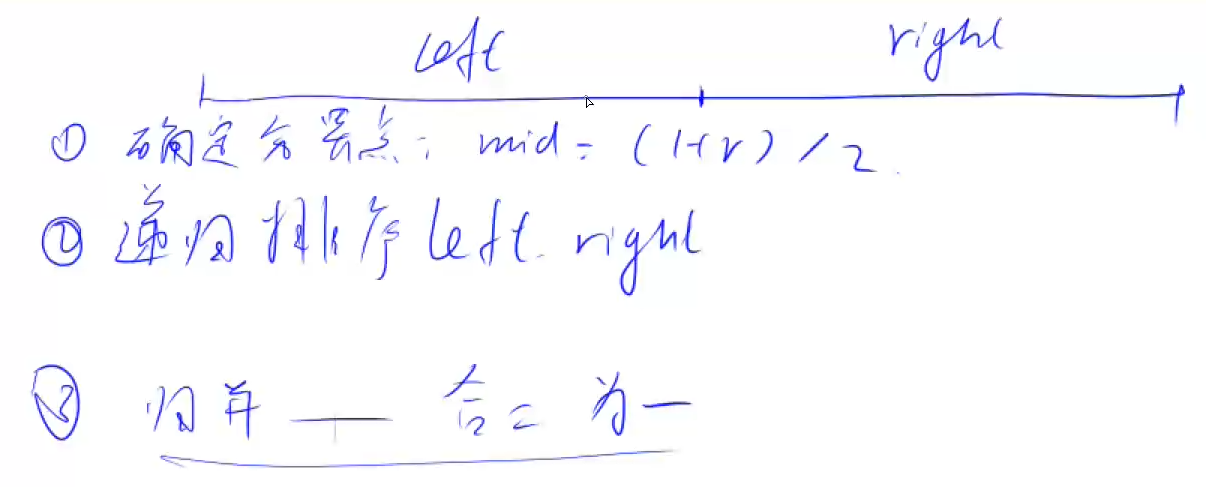 left right
① 确定分界点: mid = (l+r) / 2
② 递归排序 left. right
③ 归并 — 合二为一